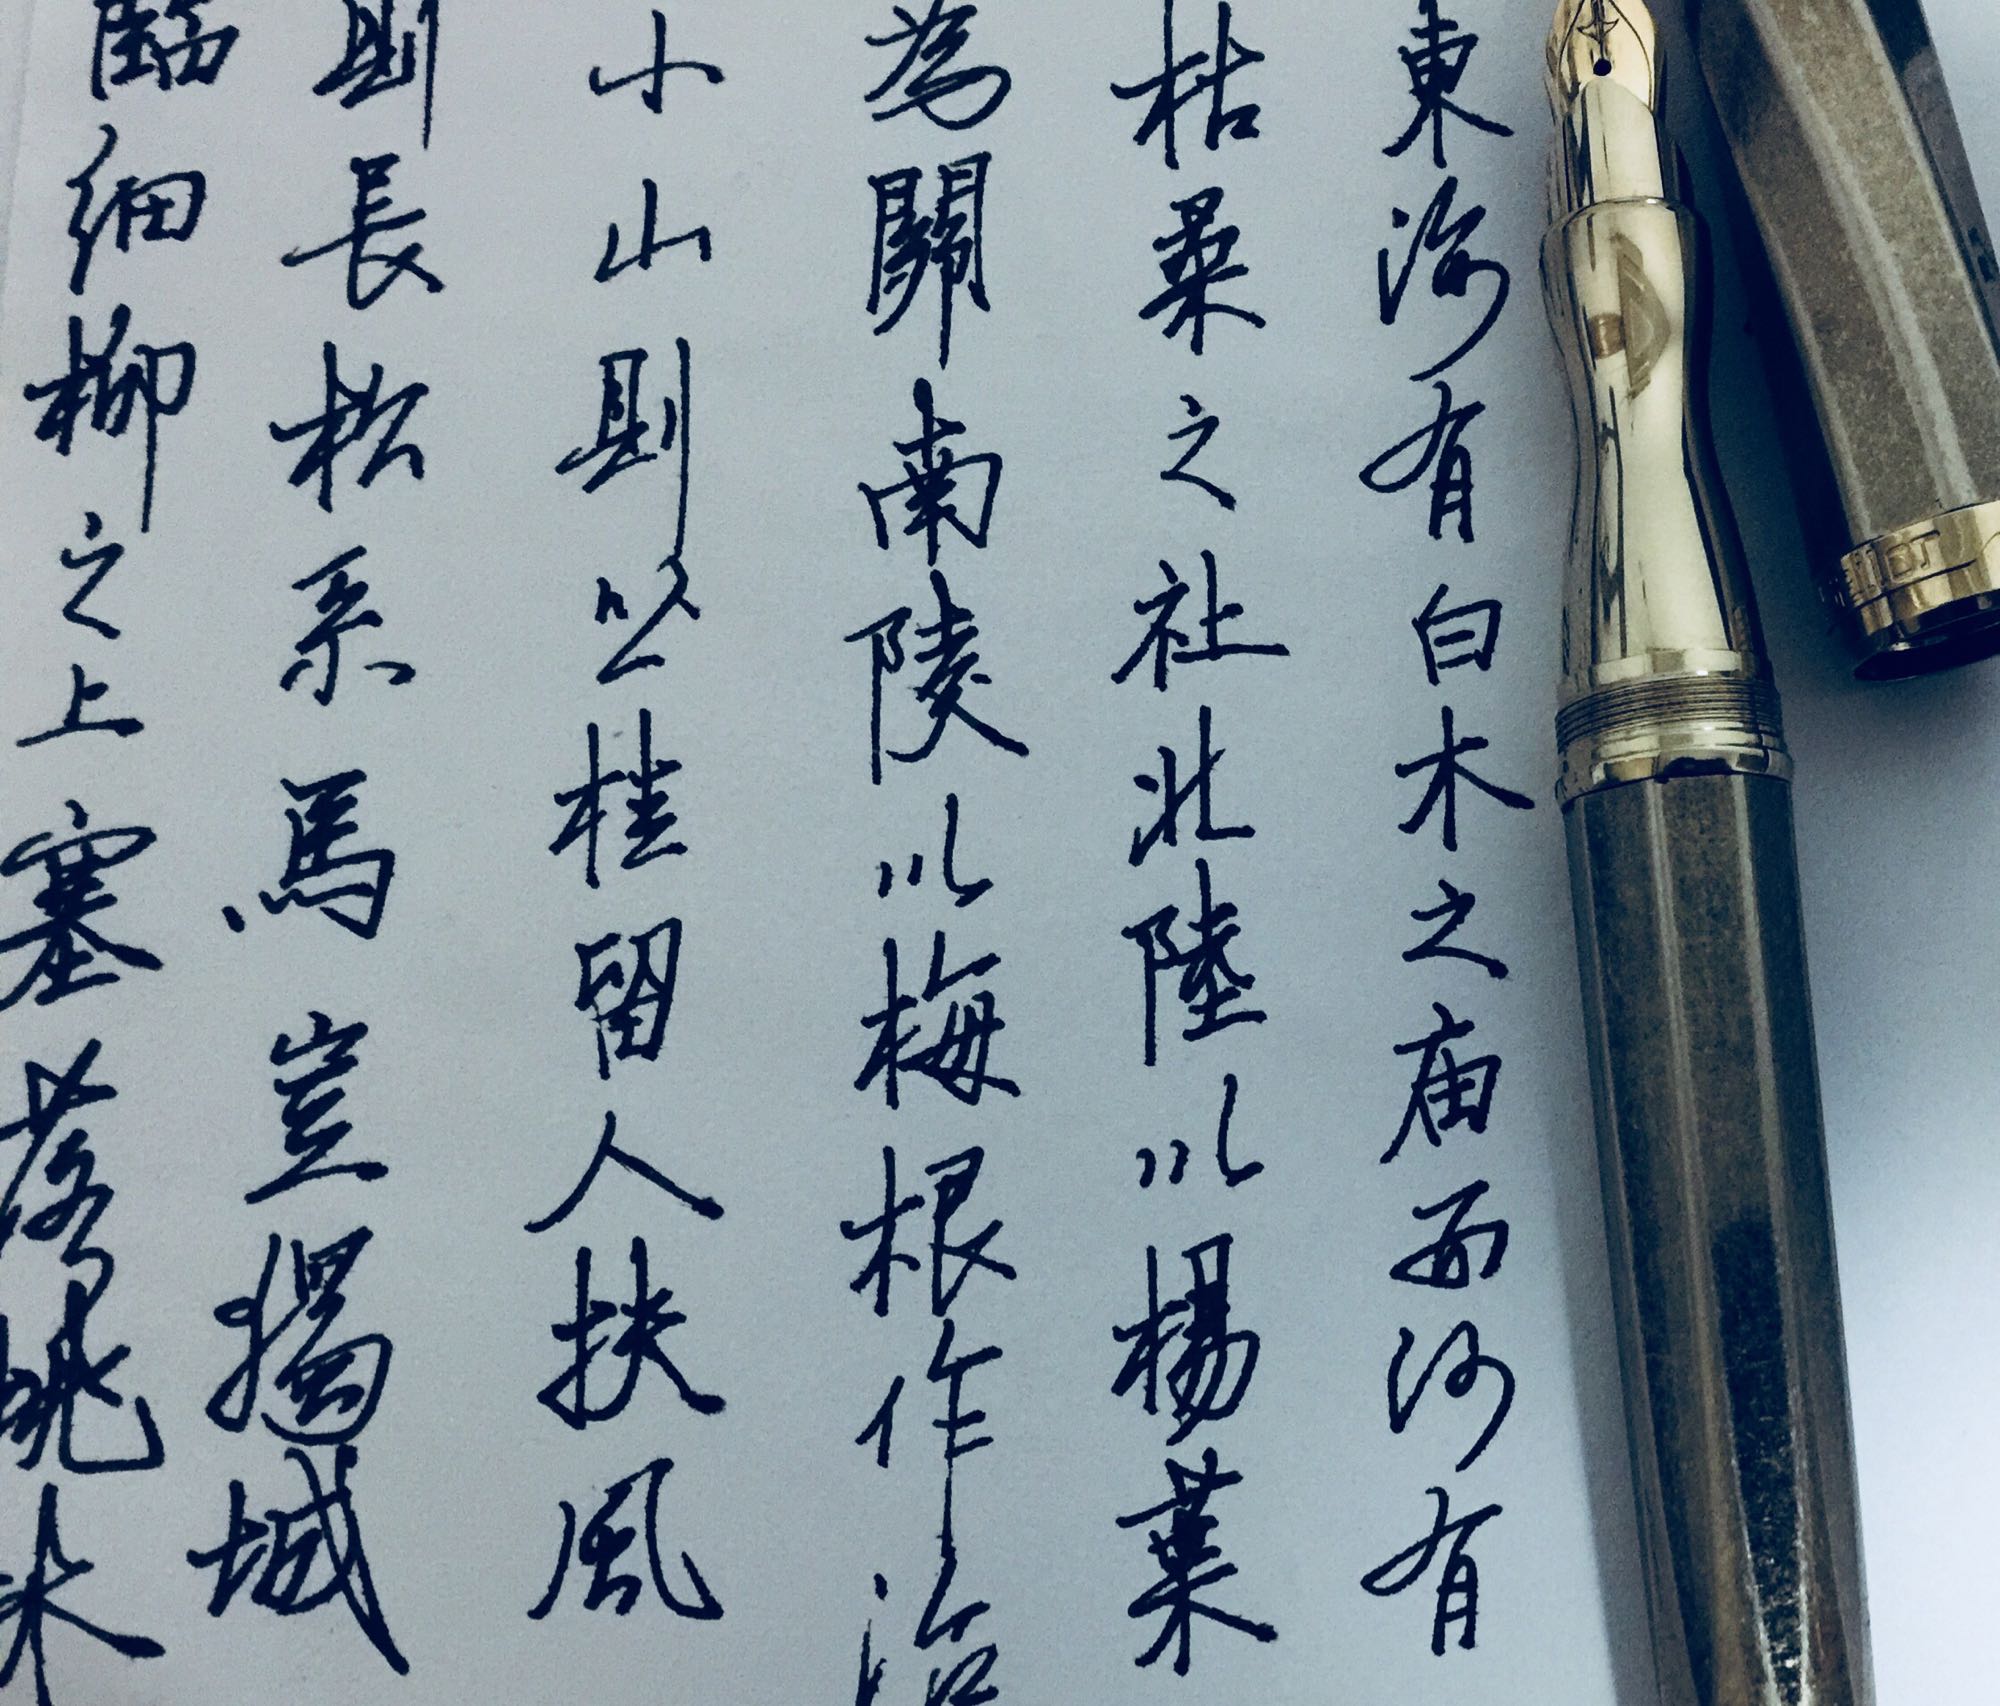 東海有白木之庙西河有
枯桒之社北陸以楊葉
為關南陵以梅根作冶
小山則丛桂留人扶風
則長松系馬豈獨城
臨細柳之上塞落桃林